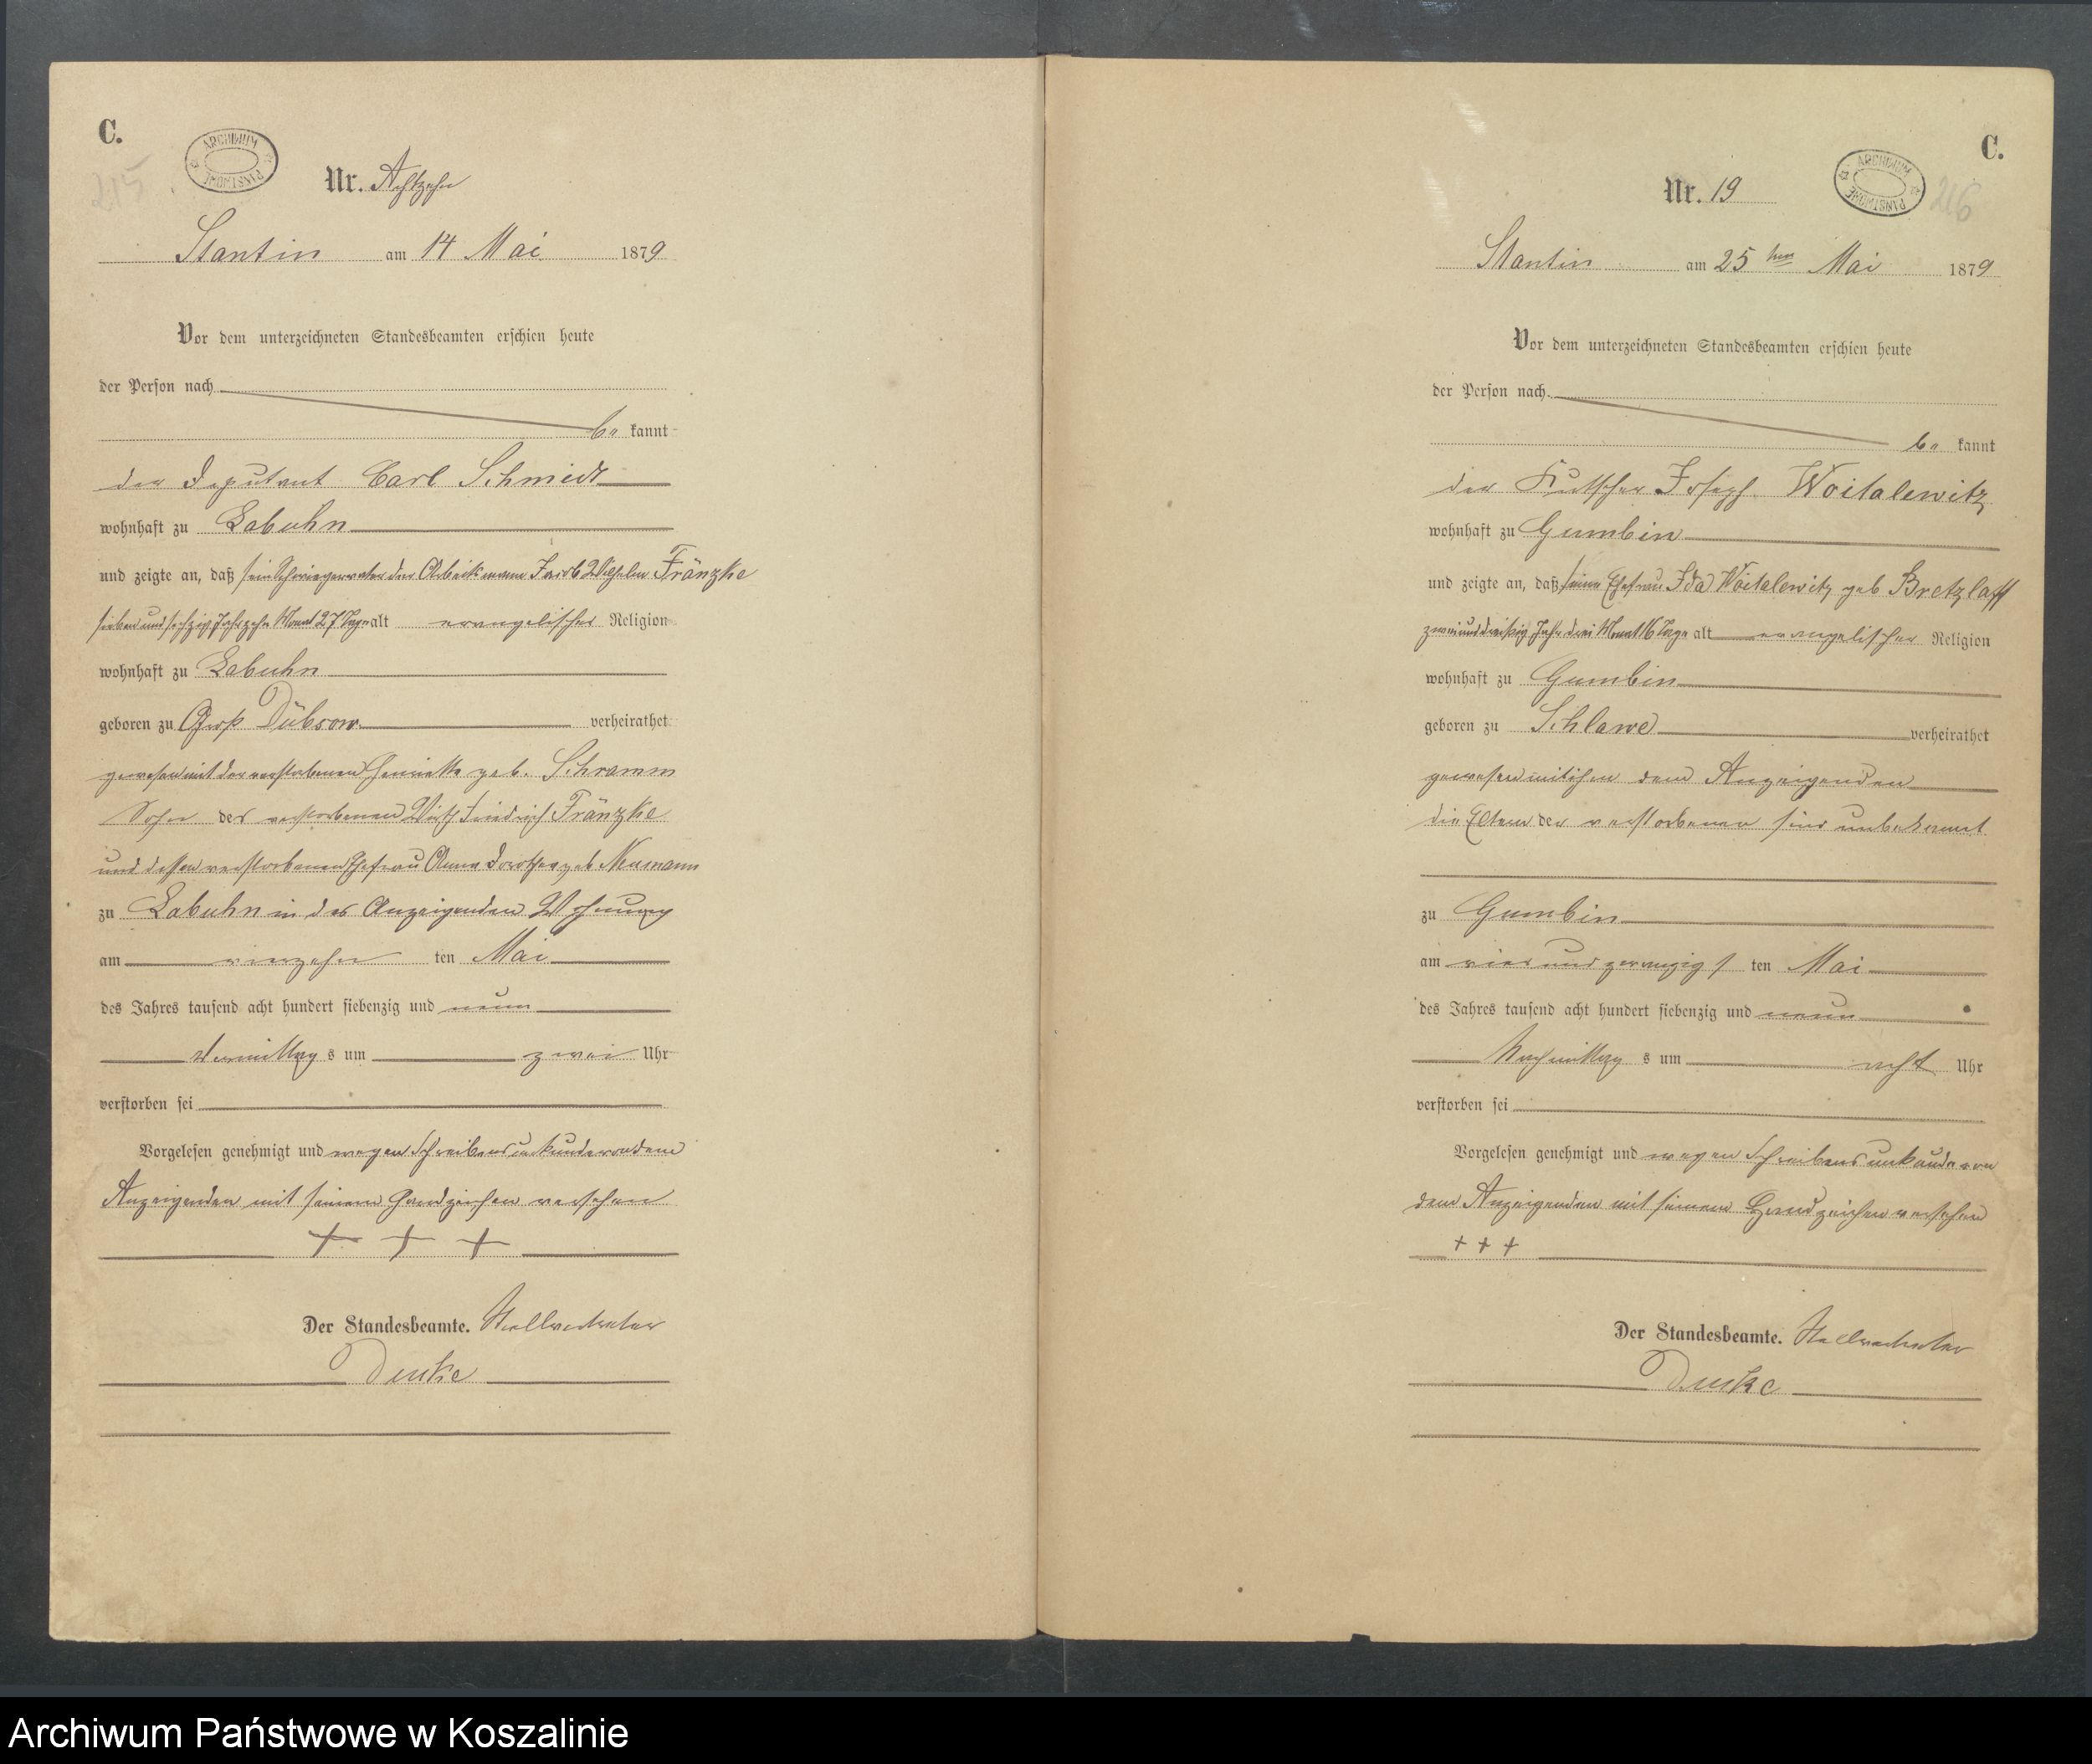 C.
215
ARCHIWUM PAŃSTWOWE
Nr. Achtzehn
Stantin am 14 Mai 1879
Vor dem unterzeichneten Standesbeamten erschien heute
der Person nach
be kannt
der Deputant Carl Schmidt
wohnhaft zu Labuhn
und zeigte an, daß sein Schwiegervater der Arbeitsmann Jacob Wilhelm Fränzke
sieben und sechzig Jahr zehn Monat 27 Tage alt evangelischer Religion
wohnhaft zu Labuhn
geboren zu Groß Dübsow verheirathet
gewesen mit der verstorbenen Henriette geb. Schramm
Sohn des verstorbenen Wirth Friedrich Fränzke
und dessen verstorbenen Ehefrau Anna Dorothea geb Neumann
zu Labuhn in des Anzeigenden Wohnung
am vierzehn ten Mai
des Jahres tausend acht hundert siebenzig und neun
Vormittag s um zwei Uhr
verstorben sei
Vorgelesen genehmigt und wegen Schreibensunkunde von dem
Anzeigenden mit seinem Handzeichen versehen
+ + +
Der Standesbeamte. Stellvertreter
C.
216
ARCHIWUM PAŃSTWOWE
Nr. 19
Stantin am 25 ten Mai 1879
Vor dem unterzeichneten Standesbeamten erschien heute
der Person nach
be kannt
der Kutscher Joseph Woitalewitz
wohnhaft zu Gumbin
und zeigte an, daß seine Ehefrau Ida Woitalewitz geb Bretzlaff
zwei und dreißig Jahr drei Monat 16 Tage alt evangelischer Religion
wohnhaft zu Gumbin
geboren zu Schlawe verheirathet
gewesen mit dem Anzeigenden
die Eltern der verstorbenen sind unbekannt
zu Gumbin
am vier und zwanzigs ten Mai
des Jahres tausend acht hundert siebenzig und neun
Nachmittag s um acht Uhr
verstorben sei
Vorgelesen genehmigt und wegen Schreibensunkunde von
dem Anzeigenden mit seinem Handzeichen versehen
+ + +
Der Standesbeamte. Stellvertreter
Archiwum Państwowe w Koszalinie